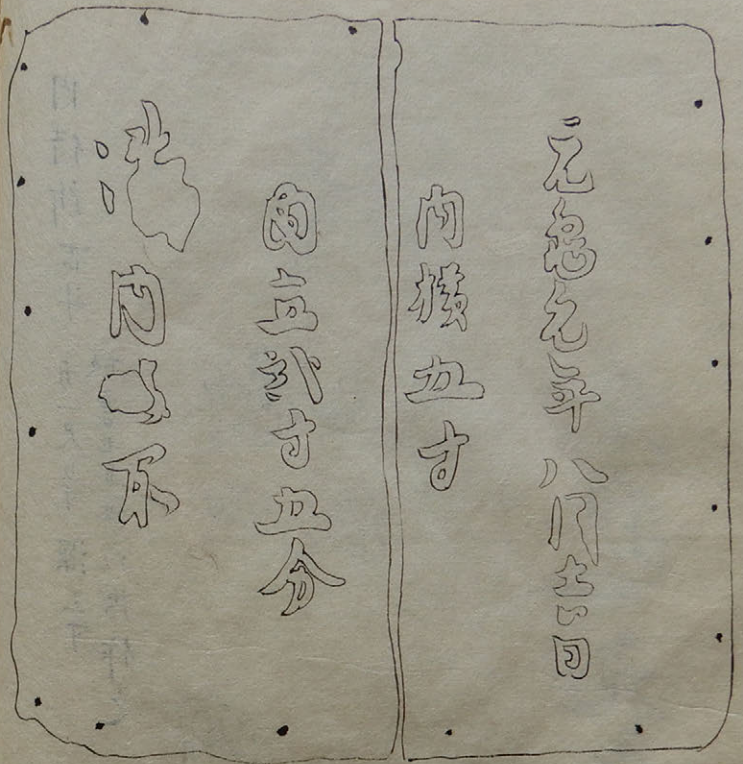 元亀元年八月吉日
内横五寸
内立弐寸五分
内